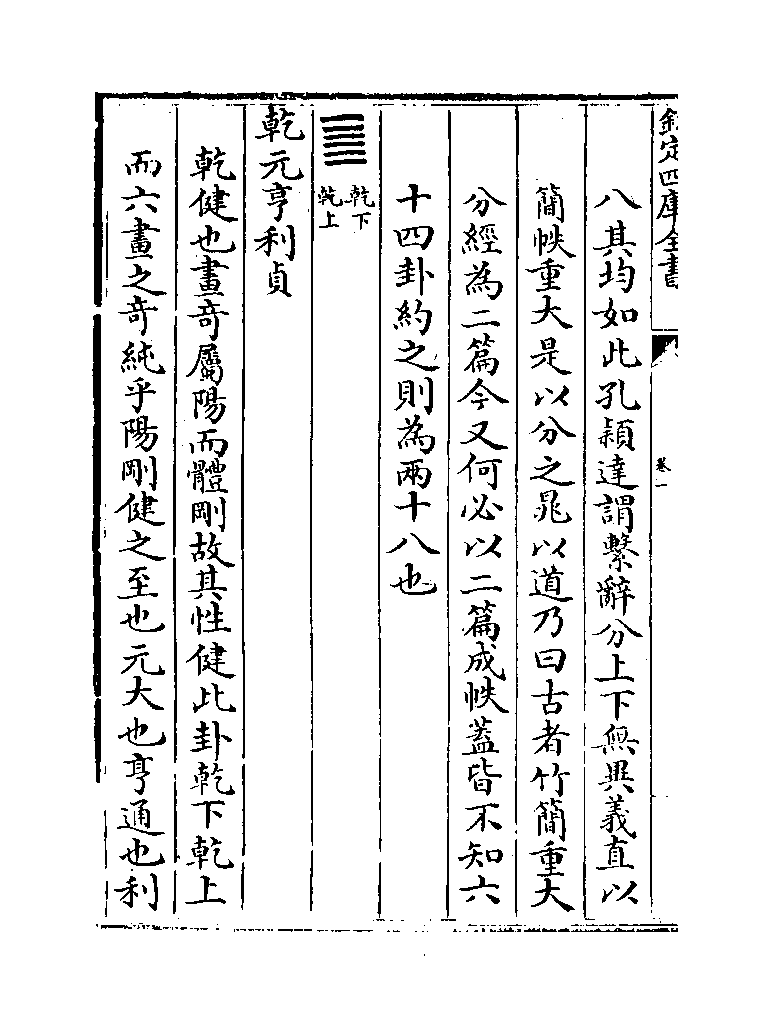 欽定四庫全書
卷一
八其均如此孔穎達謂繫辭分上下無異義直以
簡帙重大是以分之晁以道乃曰古者竹簡重大
分經為二篇今又何必以二篇成帙蓋皆不知六
十四卦約之則為兩十八也
乾下
乾上
乾元亨利貞
乾健也畫竒屬陽而體剛故其性健此卦乾下乾上
而六畫之竒純乎陽剛健之至也元大也亨通也利